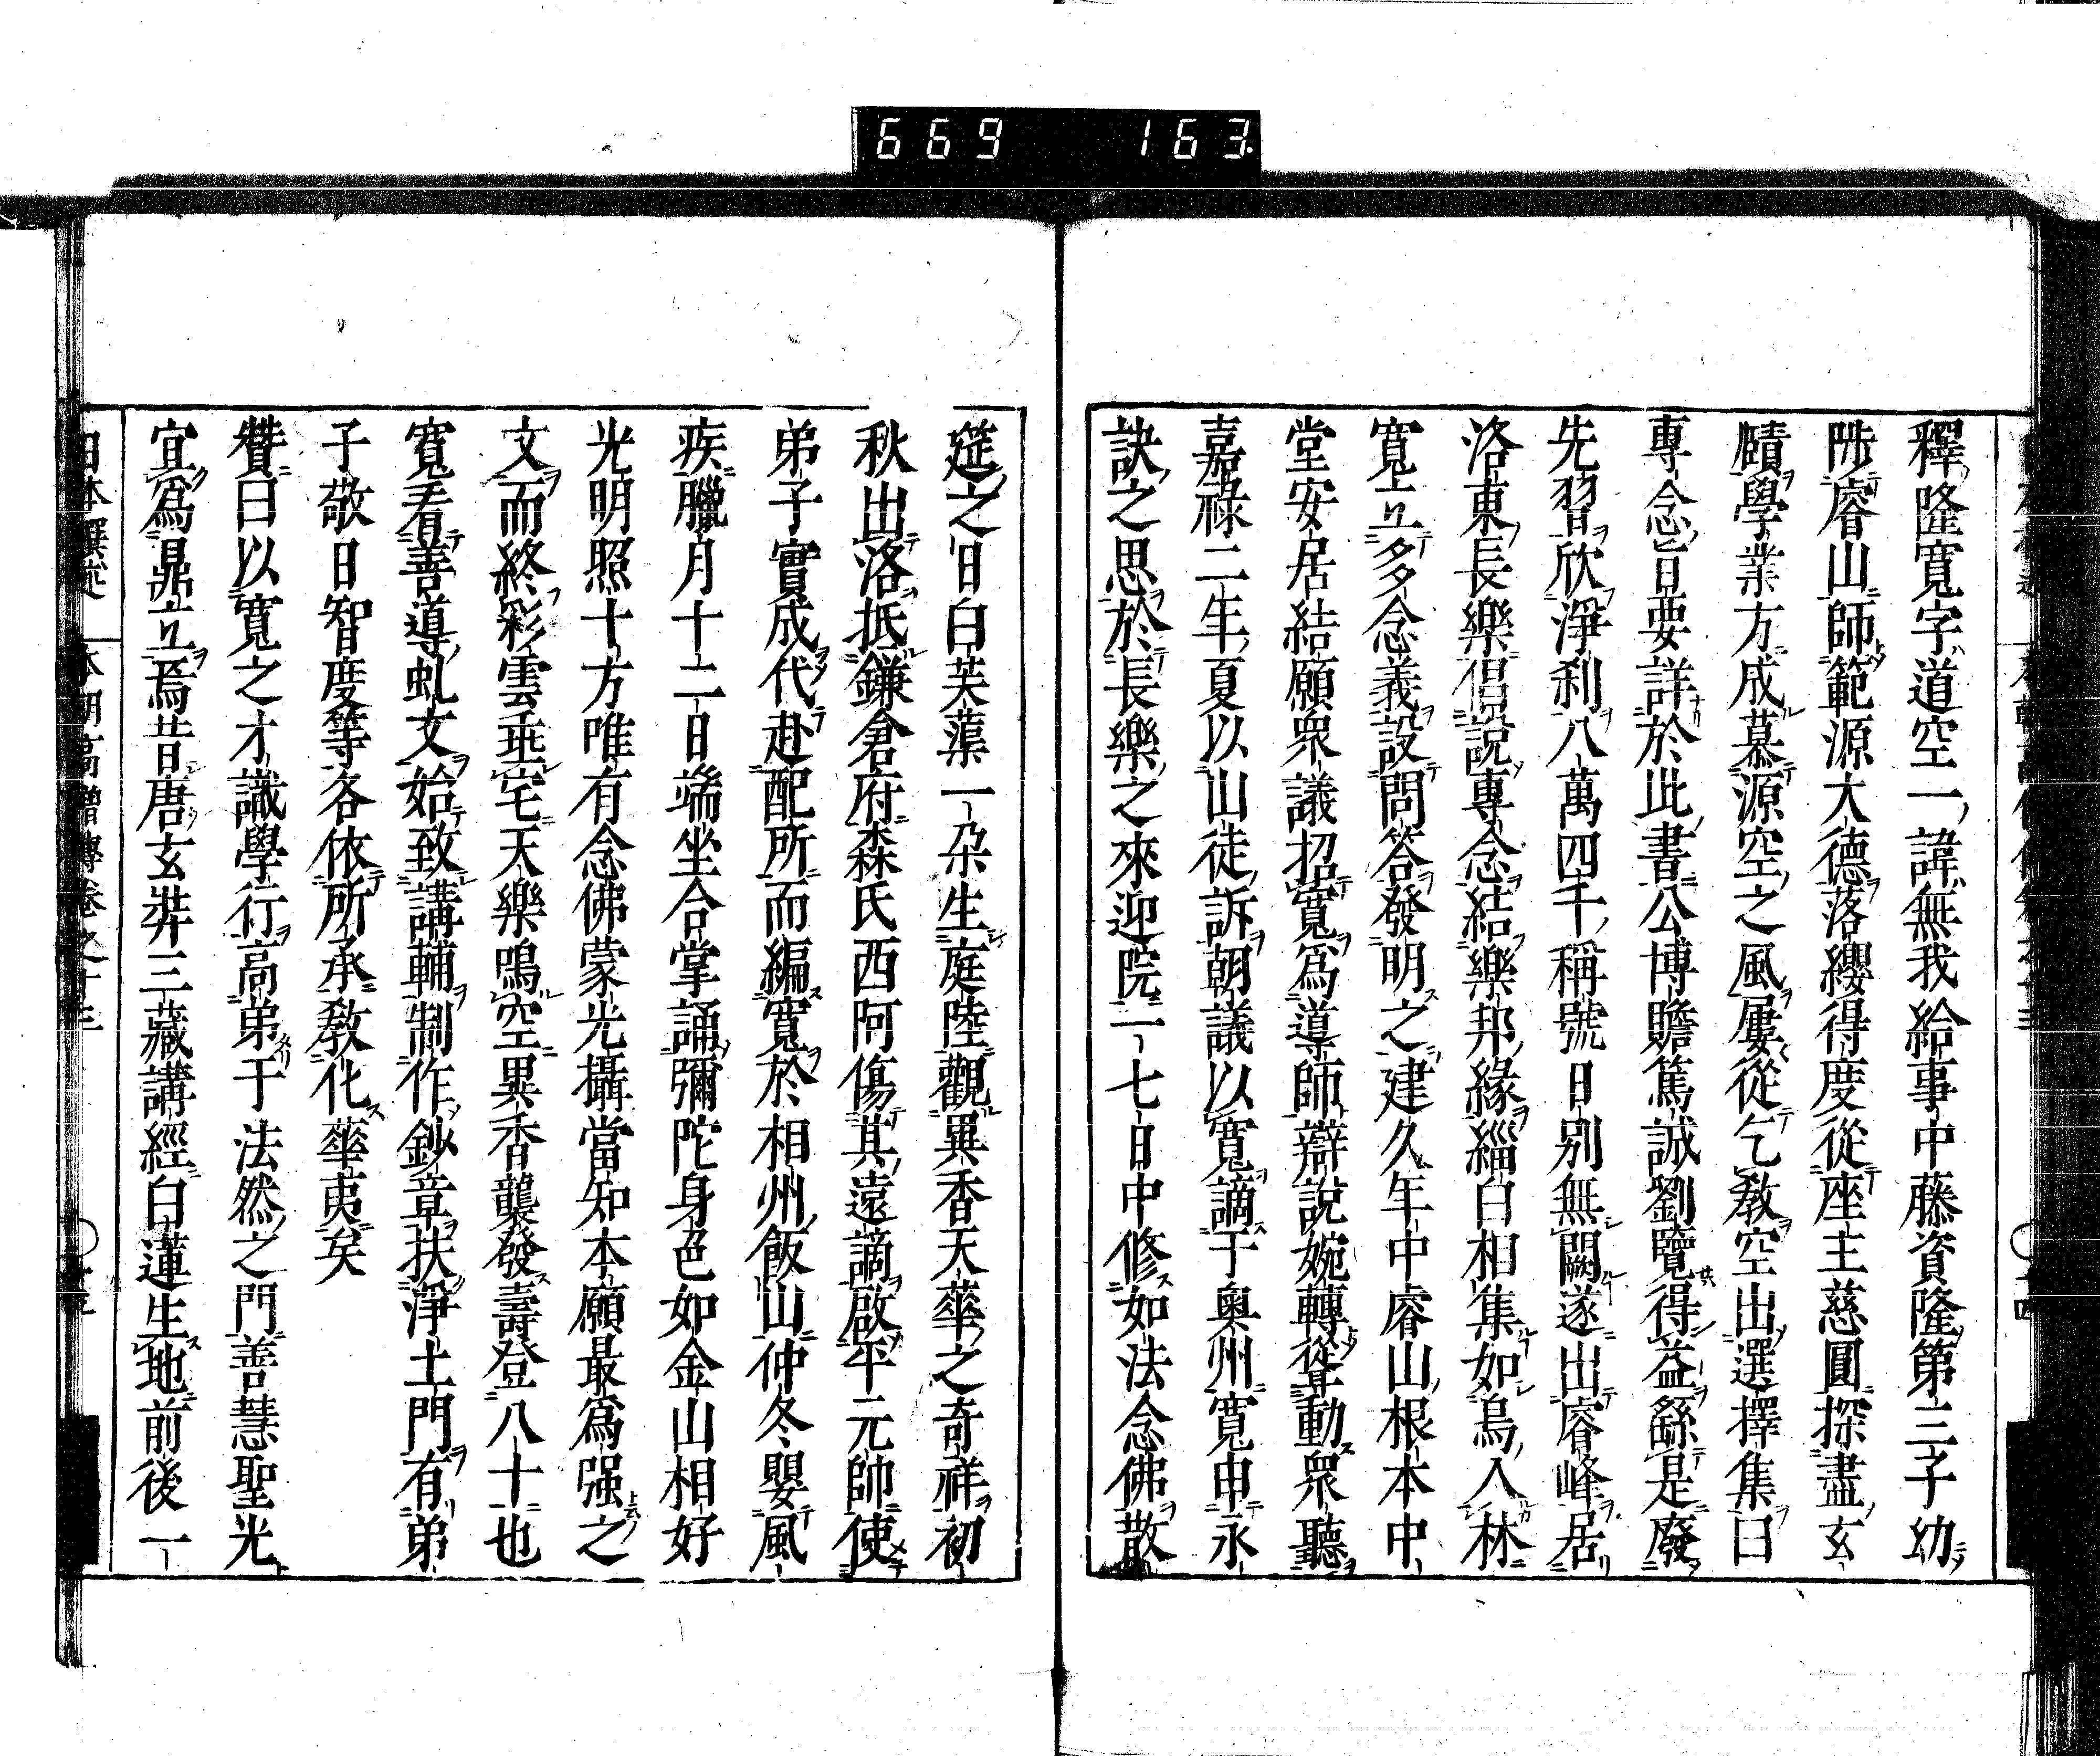 669 163
釋隆寬字道空一諱無我給事中藤資隆第三子幼
陟睿山師範源大德落纓得度從座主慈圓探盡玄
賾學業方成慕源空之風屢從乞教空出選擇集曰
專念旨要詳於此書公博贍篤誠劉覽得益繇是廢
先習欣淨刹八萬四千稱號日別無闕遂出睿峰居
洛東長樂倡說專念結樂邦緣緇白相集如鳥入林
寬立多念義設問答發明之建久年中睿山根本中
堂安居結願衆議招寬爲導師辯說婉轉聳動衆聽
嘉祿二年夏以山徒訴朝議以寬謫于奧州寬申永
訣之思於長樂之來迎院二七日中修如法念佛散
筵之日白芙蕖一朶生庭陸觀異香天華之奇祥初
秋出洛抵鎌倉府森氏西阿傷其遠謫啟平元帥使
弟子實成代赴配所而編寬於相州飯山仲冬嬰風
疾臘月十二日端坐合掌誦彌陀身色如金山相好
光明照十方唯有念佛蒙光攝當知本願最爲强之
文而終彩雲垂宅天樂鳴空異香襲發壽登八十也
寬看善導虬文始致講輔制作鈔章扶淨土門有弟
子敬日智度等各依所承敎化華夷矣
贊曰以寬之才識學行高弟于法然之門善慧聖光
宜爲鼎立焉昔唐玄弉三藏講經白蓮生地前後一
日本撰述 本朝高僧傳卷之十三